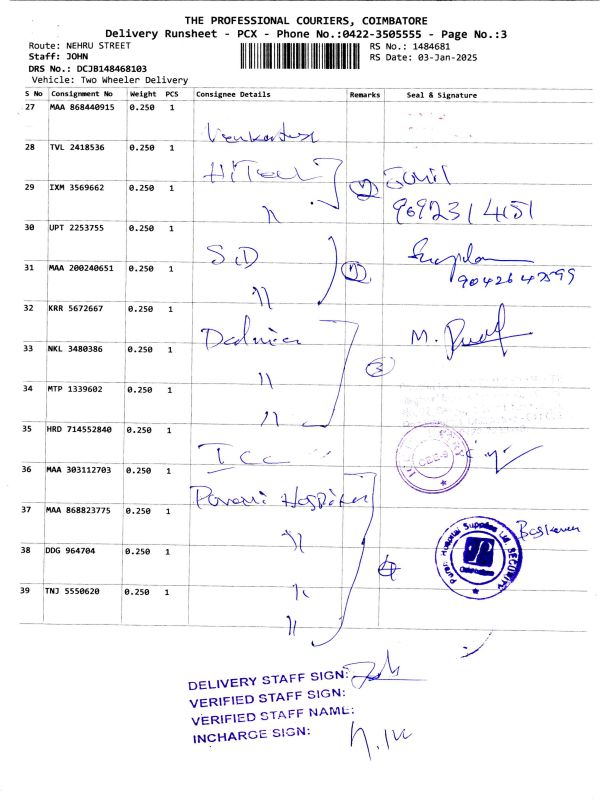 THE PROFESSIONAL COURIERS, COIMBATORE
Delivery Runsheet - PCX - Phone No.:0422-3505555 - Page No.:3
Route: NEHRU STREET
RS No.: 1484681
Staff: JOHN
RS Date: 03-Jan-2025
DRS No.: DCJB148468103
Vehicle: Two Wheeler Delivery
S No Consignment No Weight PCS Consignee Details Remarks Seal & Signature
27 MAA 868440915 0.250 1
28 TVL 2418536 0.250 1
HiTech
29 IXM 3569662 0.250 1 2
" 9092314151
30 UPT 2253755 0.250 1
S.D
31 MAA 200240651 0.250 1
"
32 KRR 5672667 0.250 1
M.
33 NKL 3480386 0.250 1
" 3
34 MTP 1339602 0.250 1
"
35 HRD 714552840 0.250 1
ICC CBE-9
36 MAA 303112703 0.250 1
Hospital
37 MAA 868823775 0.250 1
" SECURITY
38 DDG 964704 0.250 1 4
39 TNJ 5550620 0.250 1
"
"
DELIVERY STAFF SIGN:
VERIFIED STAFF SIGN:
VERIFIED STAFF NAME:
INCHARGE SIGN: